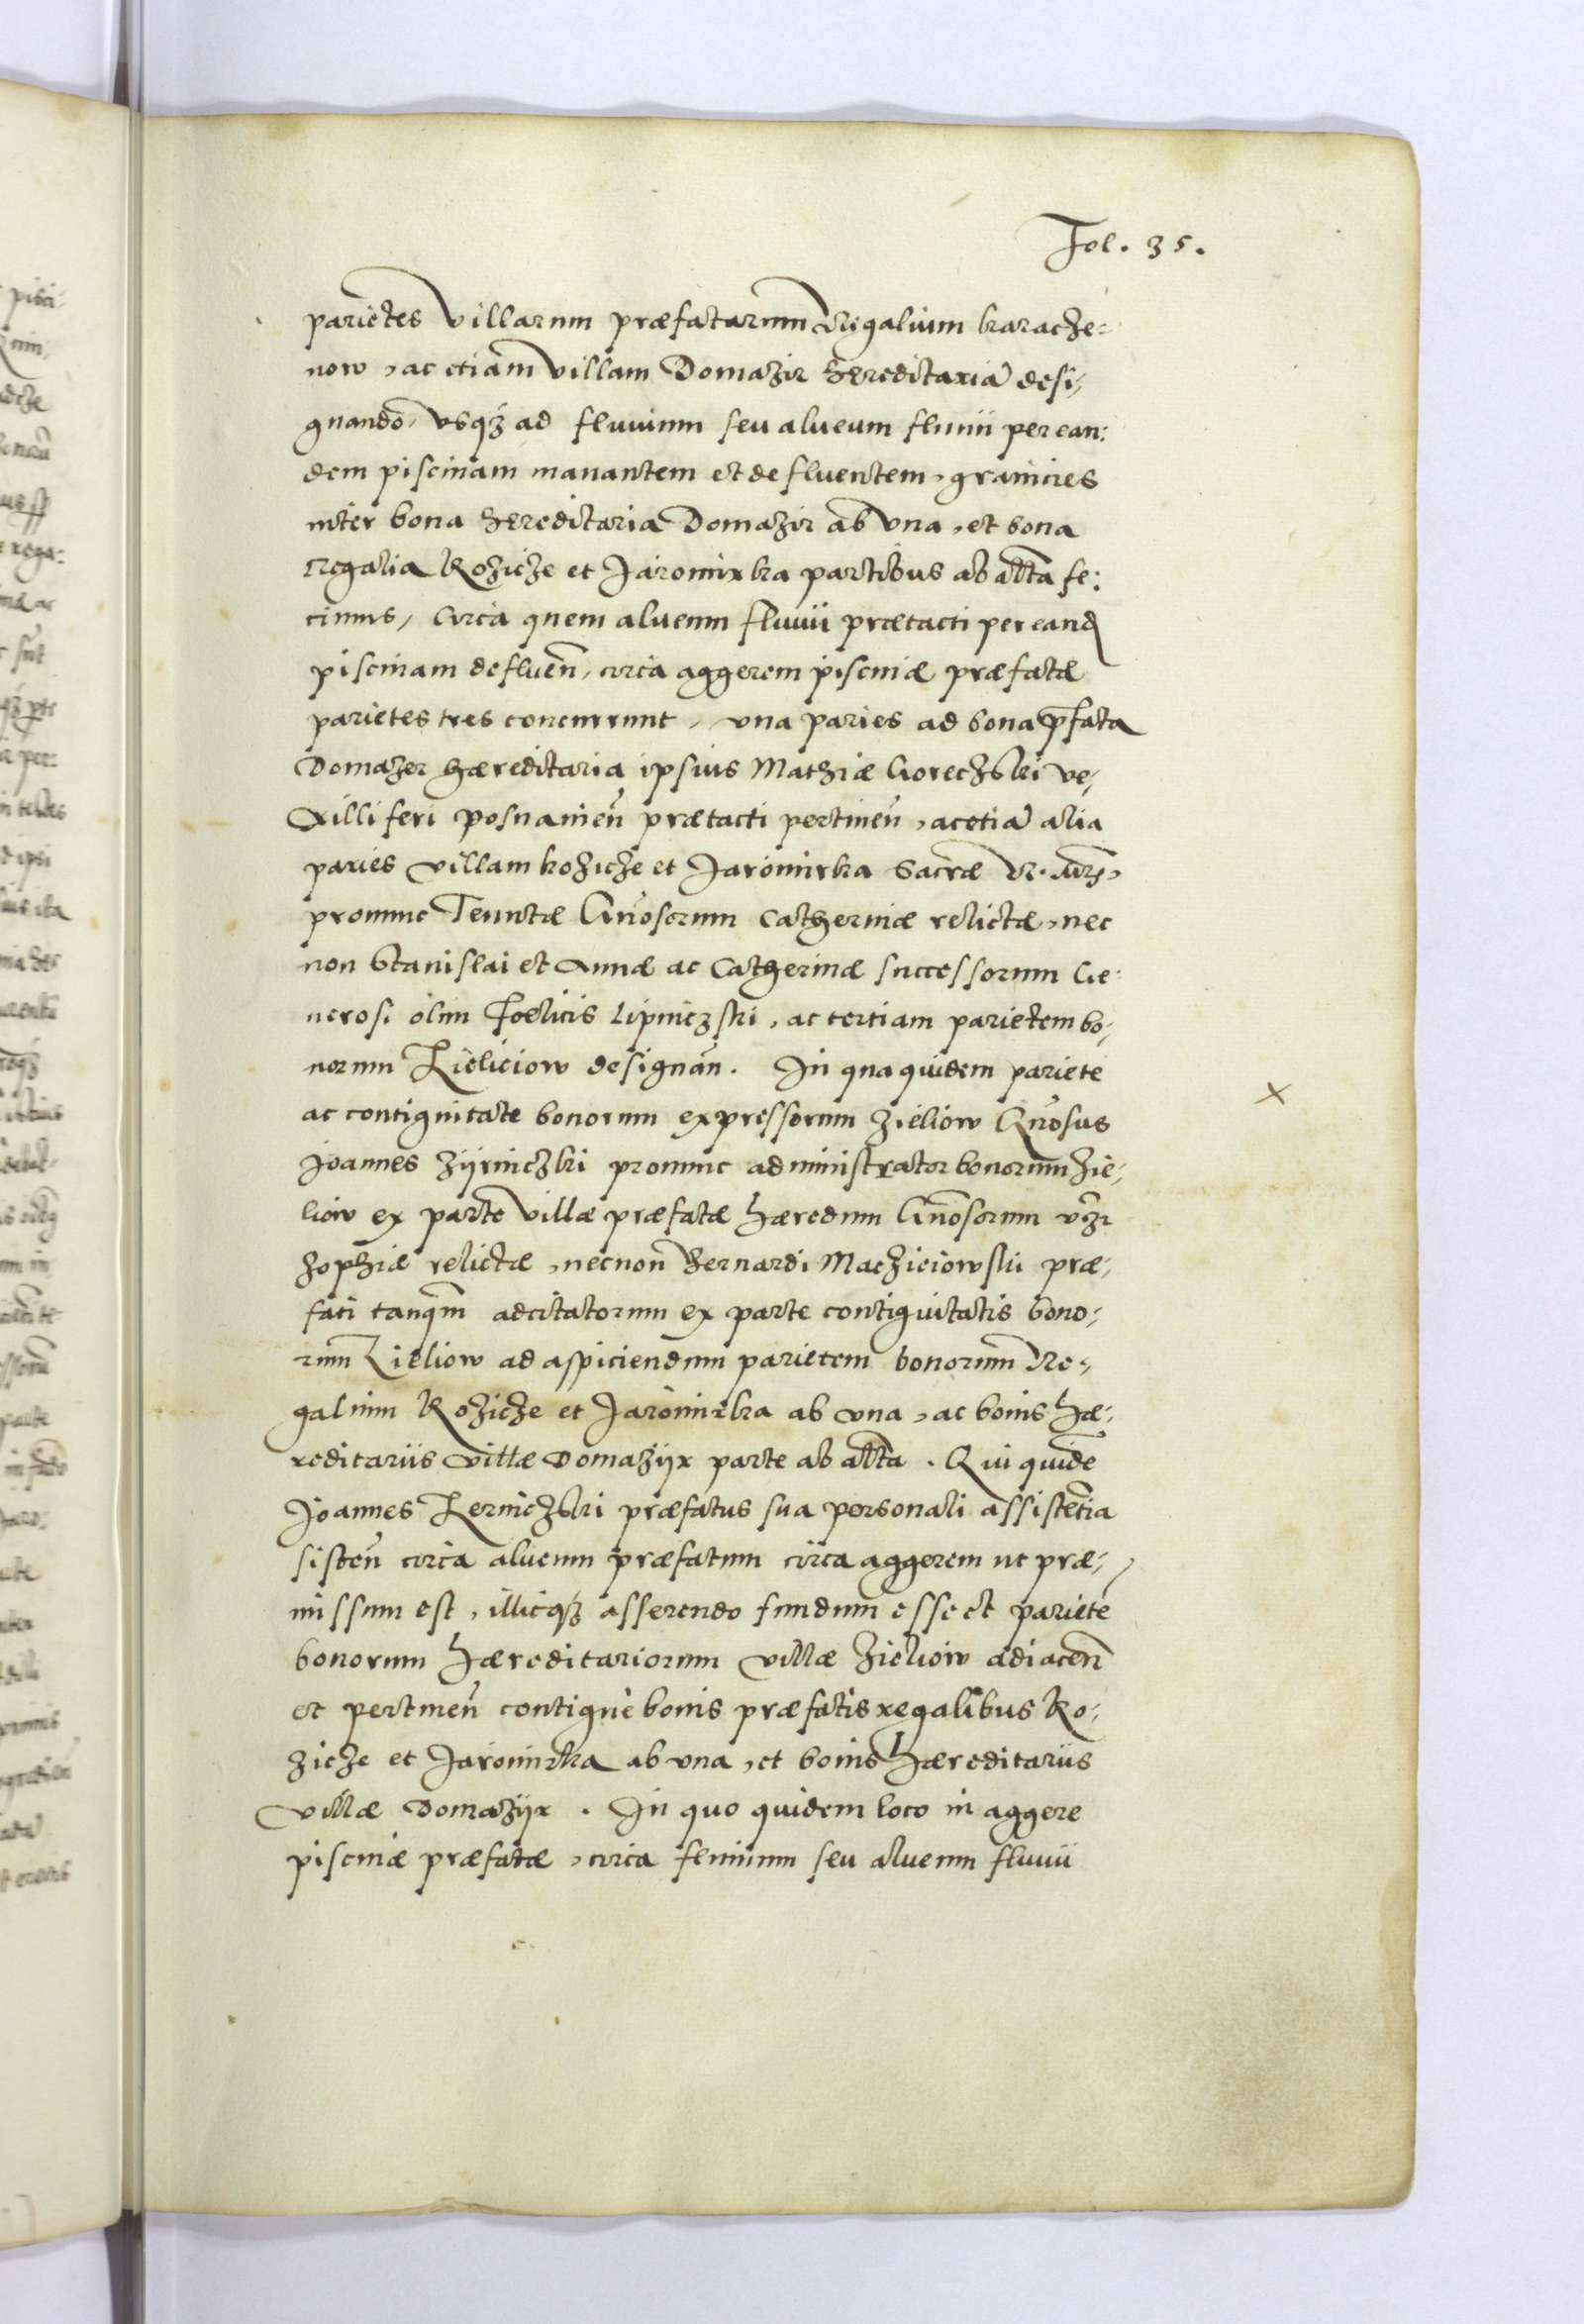 Fol. 35.
parietes villarum præfatarum Regalium karacze=
now, ac etiam villam Domazir hereditariā desi,
gnando, vsqꝫ ad fluuium seu alueum fluuii per ean:
dem piscinam manantem et defluentem, granicies
inter bona hereditaria Domazir ab vna, et bona
Regalia Roziche et Jaromirka partibus ab alta fe:
cimus, circa quem alueum fluuii prætacti per eand
piscinam defluen̄, circa aggerem piscinæ præfatæ
parietes tres concurrunt, vna paries ad bona p̄fata
Domazer hæreditaria ipsius Mathiæ Gorechski ve,
xilliferi posnanien̄ prætacti pertinen̄, ac etiā alia
paries villam koziche et Jaromirka Sacræ R.
pronunc Tenutæ Gn̄osorum Catherinæ relictæ, nec
non Stanislai et Annæ ac Catherinæ successorum Ge:
nerosi olim Foelicis Lipniczski, ac tertiam parietem bo,
norum Zieliciow designan̄. In qua quidem pariete
ac contiguitate bonorum expressorum zieliow Gn̄osus
Joannes zijrniczki pronunc administrator bonorum zie,
liow ex parte villæ præfatæ hæredum Gn̄osorum vꝫ
zophiæ relictæ, necnon Bernardi Macziciowski præ,
fati tanqm̄ adcitatorum ex parte contiguitatis bono,
rum Zieliow ad aspiciendum parietem bonorum Re,
galium Roziche et Jaromirka ab vna, ac bonis hæ,
reditariis villæ Domazijr parte ab alta. Qui quidē
Joannes Zerniczki præfatus sua personali assistētia
sisten̄ circa alueum præfatum circa aggerem ut præ,
missum est, illicqꝫ asserendo fundum esse et parietē
bonorum hæreditariorum villæ zieliow adiacen̄
et pertinen̄ contigue bonis præfatis regalibus Ro,
ziche et Jaromirka ab vna, et bonis hæreditariis
villæ Domazijr. In quo quidem loco in aggere
piscinæ præfatæ, circa fluuium seu alueum fluuii